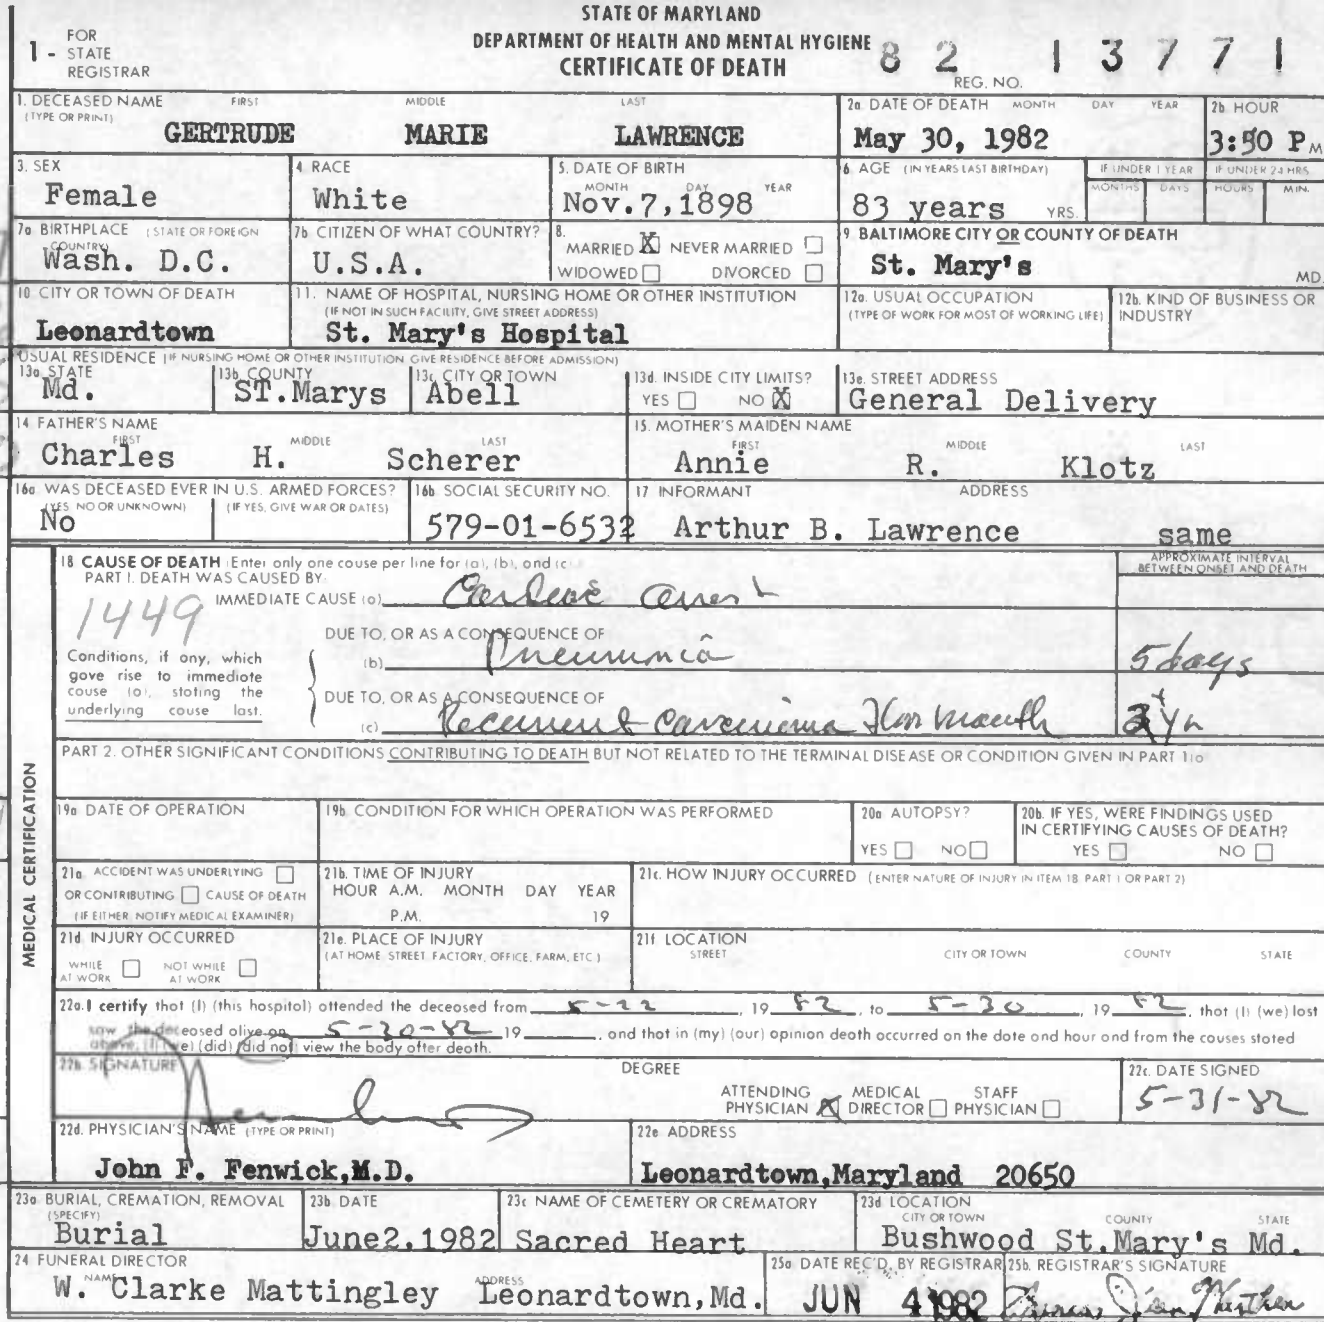 STATE OF MARYLAND
DEPARTMENT OF HEALTH AND MENTAL HYGIENE
CERTIFICATE OF DEATH
1 - FOR STATE REGISTRAR
82 13771
REG. NO.
1. DECEASED NAME (TYPE OR PRINT) FIRST MIDDLE LAST
GERTRUDE MARIE LAWRENCE
2a. DATE OF DEATH MONTH DAY YEAR
May 30, 1982
2b. HOUR
3:50 P M
3. SEX
Female
4. RACE
White
5. DATE OF BIRTH
MONTH DAY YEAR
Nov.7,1898
6. AGE (IN YEARS LAST BIRTHDAY)
83 years YRS.
IF UNDER 1 YEAR
MONTHS DAYS
IF UNDER 24 HRS.
HOURS MIN.
7a. BIRTHPLACE (STATE OR FOREIGN COUNTRY)
Wash. D.C.
7b. CITIZEN OF WHAT COUNTRY?
U.S.A.
8. MARRIED X NEVER MARRIED
WIDOWED DIVORCED
9. BALTIMORE CITY OR COUNTY OF DEATH
St. Mary's MD.
10. CITY OR TOWN OF DEATH
Leonardtown
11. NAME OF HOSPITAL, NURSING HOME OR OTHER INSTITUTION
(IF NOT IN SUCH FACILITY, GIVE STREET ADDRESS)
St. Mary's Hospital
12a. USUAL OCCUPATION
(TYPE OF WORK FOR MOST OF WORKING LIFE)
12b. KIND OF BUSINESS OR INDUSTRY
USUAL RESIDENCE (IF NURSING HOME OR OTHER INSTITUTION GIVE RESIDENCE BEFORE ADMISSION)
13a. STATE
Md.
13b. COUNTY
ST.Marys
13c. CITY OR TOWN
Abell
13d. INSIDE CITY LIMITS?
YES NO X
13e. STREET ADDRESS
General Delivery
14. FATHER'S NAME
FIRST MIDDLE LAST
Charles H. Scherer
15. MOTHER'S MAIDEN NAME
FIRST MIDDLE LAST
Annie R. Klotz
16a. WAS DECEASED EVER IN U.S. ARMED FORCES?
(YES, NO OR UNKNOWN) (IF YES, GIVE WAR OR DATES)
No
16b. SOCIAL SECURITY NO.
579-01-6532
17 INFORMANT ADDRESS
Arthur B. Lawrence same
MEDICAL CERTIFICATION
18 CAUSE OF DEATH (Enter only one cause per line for (a), (b), and (c)
APPROXIMATE INTERVAL BETWEEN ONSET AND DEATH
PART I. DEATH WAS CAUSED BY:
1449
IMMEDIATE CAUSE (a) Cardiac arrest
DUE TO, OR AS A CONSEQUENCE OF
(b) Pneumonia 5 days
Conditions, if any, which gave rise to immediate cause (a), stating the underlying cause last.
DUE TO, OR AS A CONSEQUENCE OF
(c) Recurrent carcinoma Floor Mouth 2+ yr
PART 2. OTHER SIGNIFICANT CONDITIONS CONTRIBUTING TO DEATH BUT NOT RELATED TO THE TERMINAL DISEASE OR CONDITION GIVEN IN PART 1(a)
19a. DATE OF OPERATION
19b. CONDITION FOR WHICH OPERATION WAS PERFORMED
20a. AUTOPSY?
YES NO
20b. IF YES, WERE FINDINGS USED IN CERTIFYING CAUSES OF DEATH?
YES NO
21a. ACCIDENT WAS UNDERLYING
OR CONTRIBUTING CAUSE OF DEATH
(IF EITHER, NOTIFY MEDICAL EXAMINER)
21b. TIME OF INJURY
HOUR A.M. MONTH DAY YEAR
P.M. 19
21c. HOW INJURY OCCURRED (ENTER NATURE OF INJURY IN ITEM 18 PART 1 OR PART 2)
21d. INJURY OCCURRED
WHILE AT WORK NOT WHILE AT WORK
21e. PLACE OF INJURY
(AT HOME, STREET, FACTORY, OFFICE, FARM, ETC.)
21f. LOCATION
STREET CITY OR TOWN COUNTY STATE
22a. I certify that (I) (this hospital) attended the deceased from 5-22, 19 82, to 5-30, 19 82, that (I) (we) last
saw the deceased alive on 5-30-82 19 , and that in (my) (our) opinion death occurred on the date and hour and from the causes stated
above, (I) (we) (did) (did not) view the body after death.
22b. SIGNATURE
DEGREE
ATTENDING PHYSICIAN X MEDICAL DIRECTOR STAFF PHYSICIAN
22c. DATE SIGNED
5-31-82
22d. PHYSICIAN'S NAME (TYPE OR PRINT)
John F. Fenwick,M.D.
22e. ADDRESS
Leonardtown,Maryland 20650
23a. BURIAL, CREMATION, REMOVAL (SPECIFY)
Burial
23b. DATE
June2,1982
23c. NAME OF CEMETERY OR CREMATORY
Sacred Heart
23d. LOCATION
CITY OR TOWN COUNTY STATE
Bushwood St.Mary's Md.
24 FUNERAL DIRECTOR
NAME ADDRESS
W. Clarke Mattingley Leonardtown,Md.
25a. DATE REC'D. BY REGISTRAR
JUN 4 1982
25b. REGISTRAR'S SIGNATURE